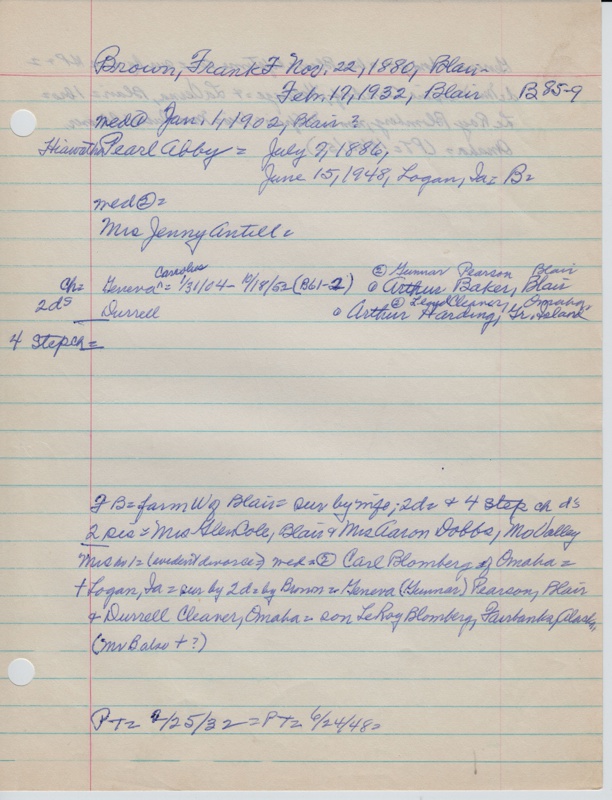 Brown, Frank F Nov. 22, 1880, Blair-
Feb. 17, 1932, Blair B85-9
med① Jan 1, 1902, Blair?
Hiawatha Pearl Abby = July 7, 1886,
June 15, 1948, Logan, Ia = B=
med②=
Mrs Jenny Antill =
Carolus ② Gunnar Pearson Blair
ch= Geneva ^ = 1/31/04 - 10/18/52 (B61-2) ① Arthur Baker, Blair
2ds ② Lloyd Cleaver, Omaha
Durrell ① Arthur Harding, Gr. Island
4 Step ch =
F B= farm W of Blair = sur by wife; 2d= & 4 step ch ds
2 sis = Mrs Glen Cole, Blair & Mrs Aaron Dobbs, Mo Valley
Mrs no 1= (evident divorce) med ② Carl Blomberg of Omaha =
+ Logan, Ia = sur by 2d= by Brown = Geneva (Gunnar) Pearson, Blair
& Durrell Cleaver, Omaha = son LeRoy Blomberg, Fairbanks, Alaska,
(Mr B also + ?)
PT= 2/25/32 = PT= 6/24/48=